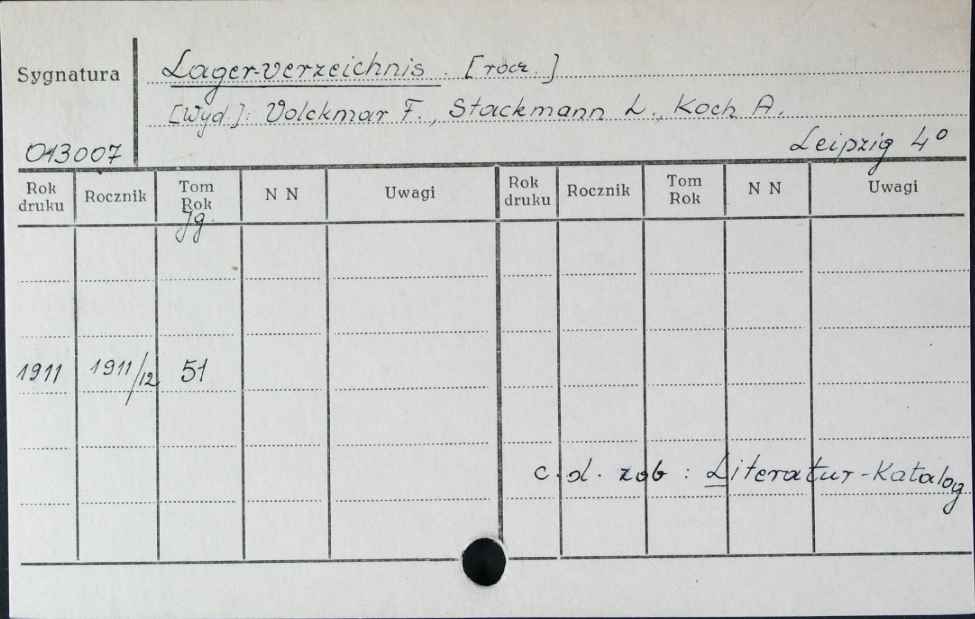 Sygnatura
Lager-verzeichnis. [rocz.]
[Wyd.]: Volckmar F., Stackmann L., Koch A.
013007
Leipzig 4°
Rok druku Rocznik Tom Rok N N Uwagi Rok druku Rocznik Tom Rok N N Uwagi
Jg.
1911 1911/12 51
c.d. zob: Literatur-Katalog